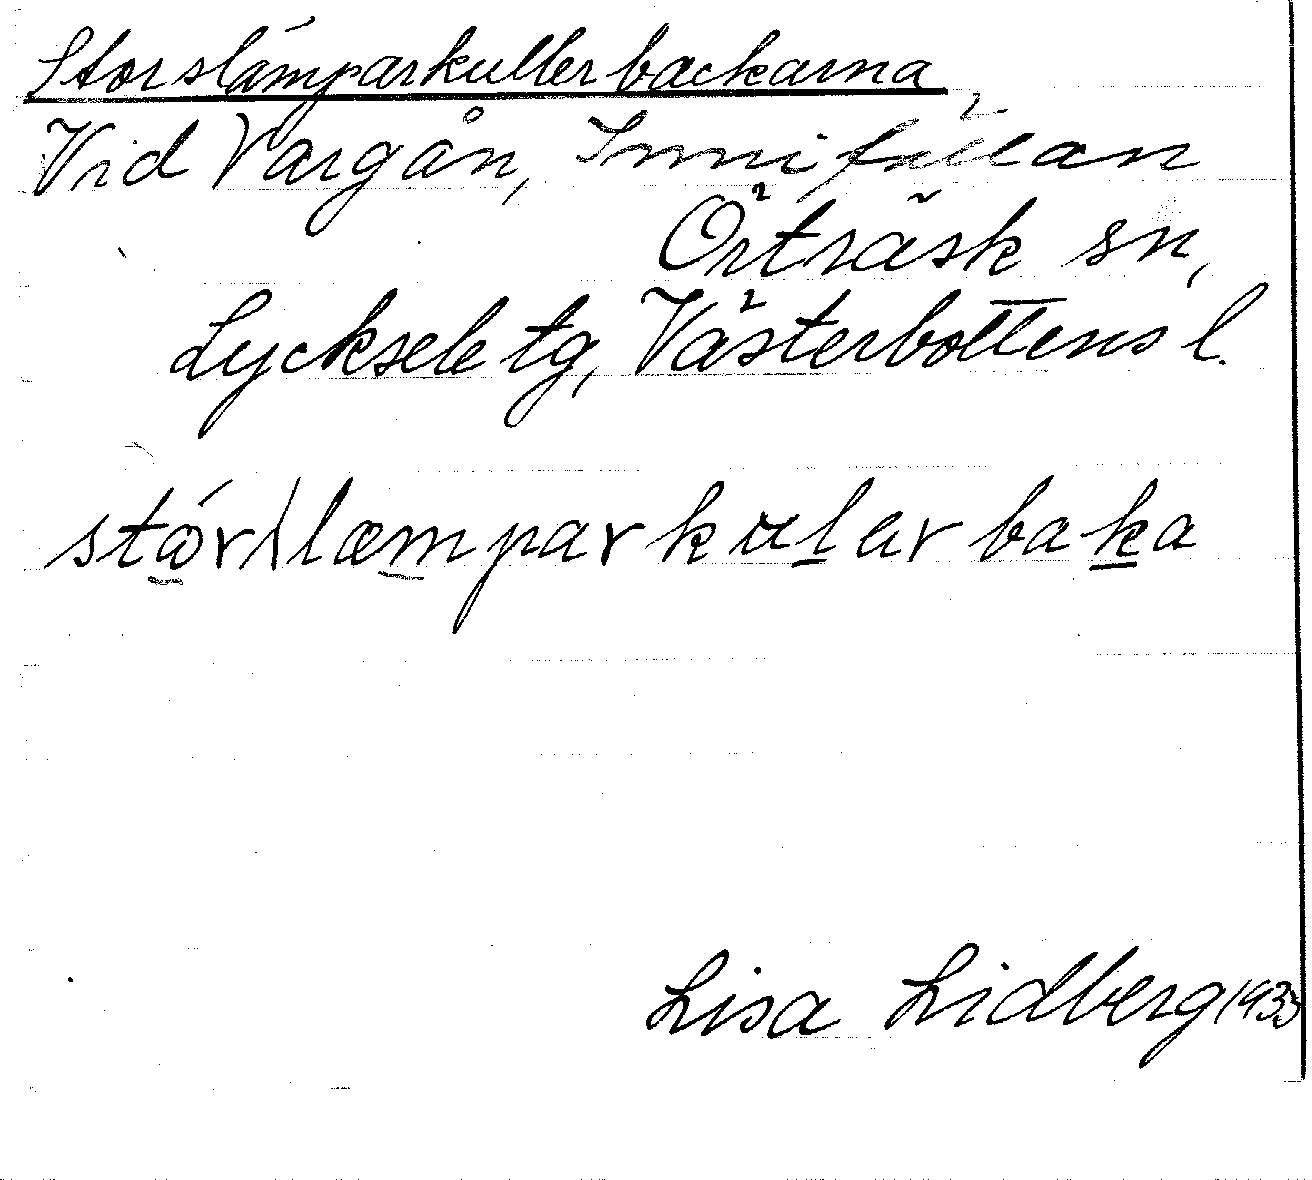 Storslämparkullerbackarna
Vid Vargån, Innifällan
Örträsk sn,
Lycksele tg, Västerbottens l.
stórslæmparkulerbaka
Lisa Lidberg 1935